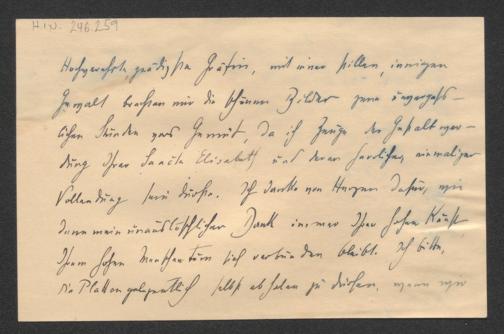 H.I.N. 246.259
Hochverehrte, gnädigste Gräfin, mit einer stillen, innigen
Gewalt brachten mir die schönen Bilder jene unvergess-
lichen Stunden vors Gemüt, da ich Zeuge der Gestaltwer-
dung Ihrer Sancta Elisabeth und deren herrlicher, einmaliger
Vollendung sein durfte. Ich danke von Herzen dafür, wie
denn mein unauslöschlicher Dank immer Ihrer hohen Kunst
Ihrem hohen Menschentum sich verbunden bleibt. Ich bitte,
die Platten gelegentlich selbst abholen zu dürfen, wenn